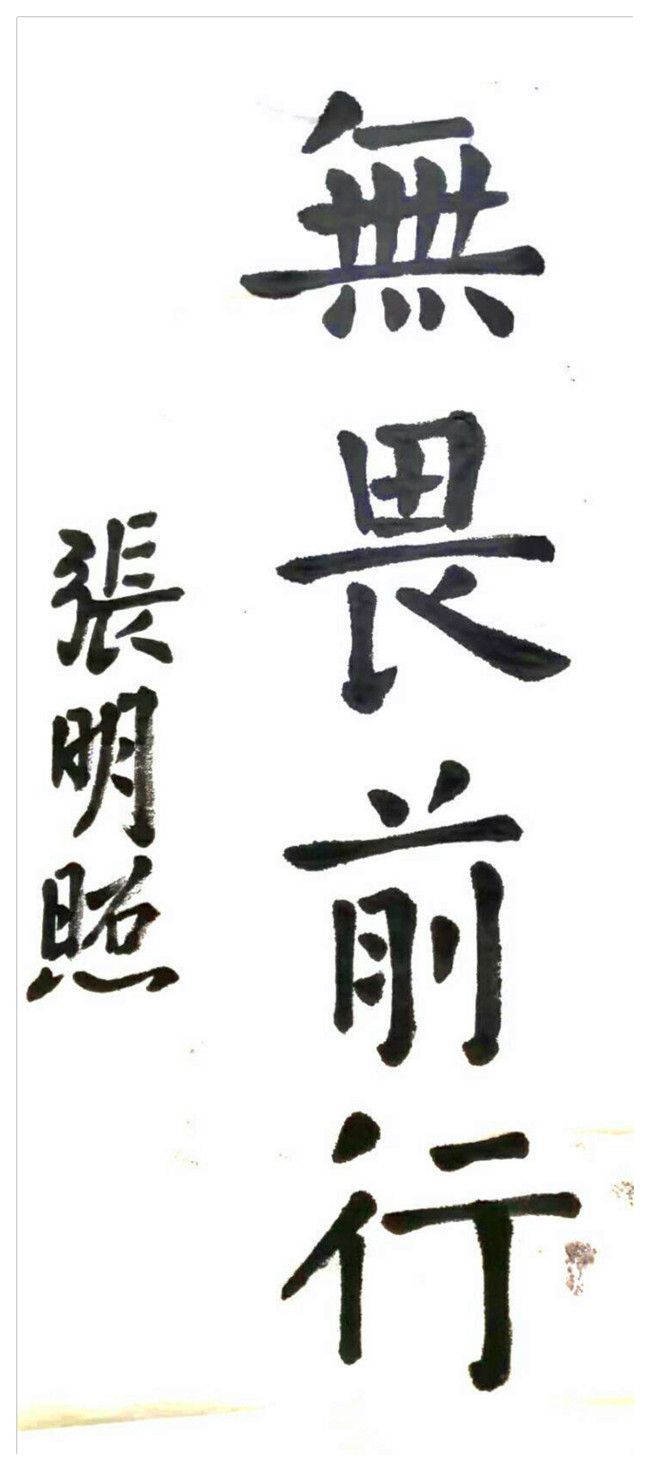 無畏前行
張明照